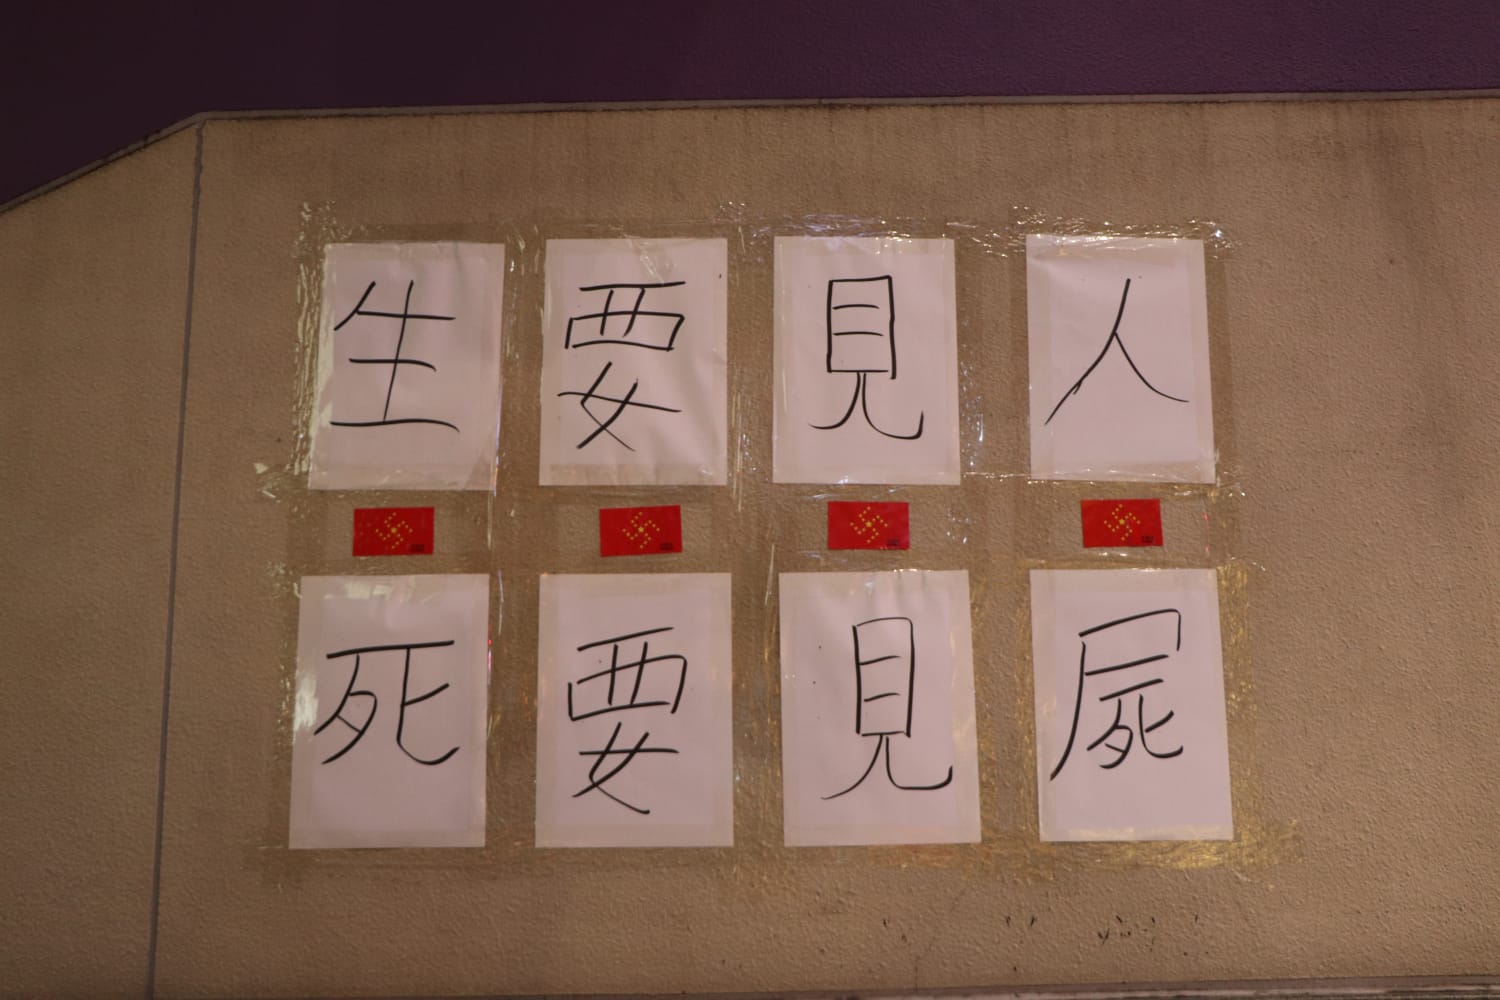 生要見人
死要見屍